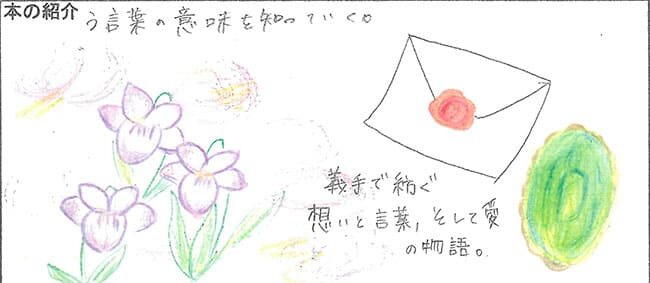 本の紹介
う言葉の意味を知っていく。
義手で紡ぐ
想いと言葉,そして愛
の物語。